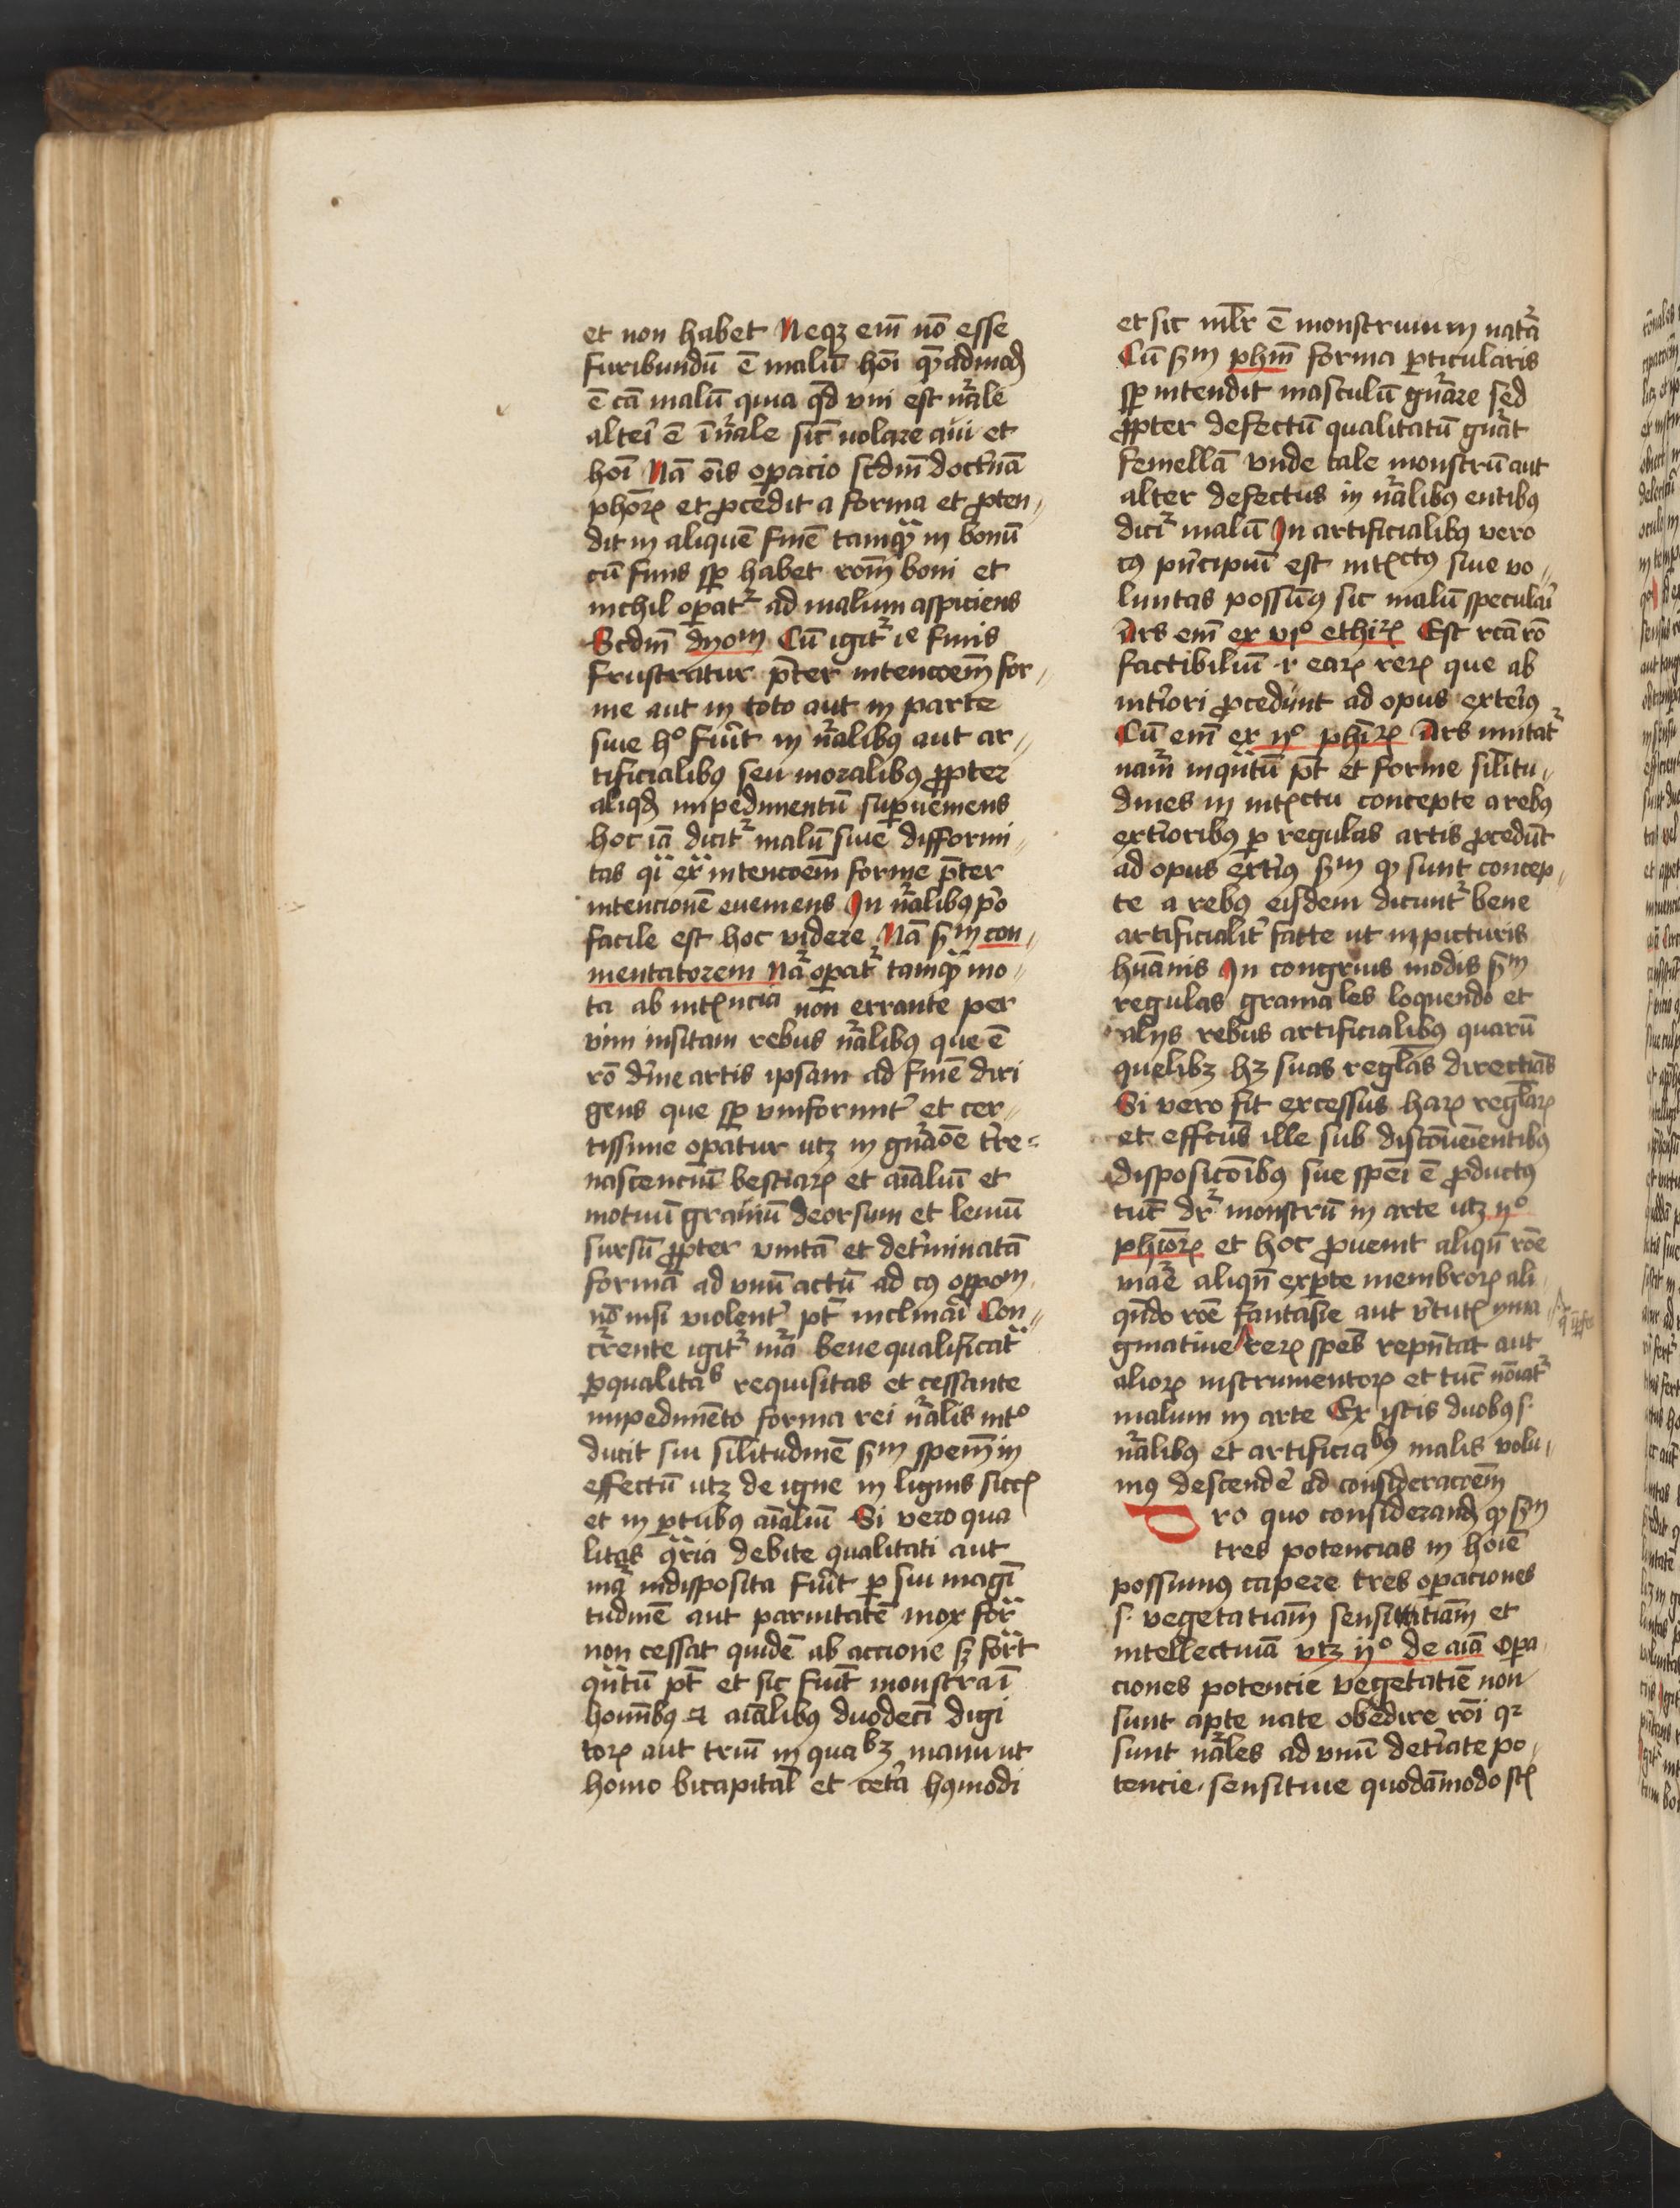 et non habet Neqꝫ em̄ nō esse
furibundū ē malū hoī qꝫadmodꝫ
ē cā malū quia qd̄ vni est nāle
alteī ē īnāle sic̄ uolare aui et
hoī Nā oīs opacio scdm̄ doctnā
phōꝝ et ꝓcedit a forma et ꝓten
dit in aliquē finē tamqꝫ in bonū
cū finis sꝑ habet rōm̄ boni et
nichil opatᷣ ad malum aspiciens
Scdm̄ dyom Cū igitᷣ ie finis
frustratur p̄ter intencoem̄ for
me aut in toto aut in parte
siue hͦ fuīt in nālibꝫ aut ar
tificialibꝫ seu moralibꝫ ꝓpter
aliqdꝫ impedimentū supueniens
hoc iā dicitᷣ malū siue difformi
tas qi ex intencoem̄ forme p̄ter
intencionē eueniens In nālibꝫ pͦo
facile est hoc videre Nā sm̄ con
mentatorem Nā opatᷣ tamqꝫ mo
ta ab intꝉncia non errante per
vim insitam rebus nālibꝫ que ē
rō dīne artis ipsam ad finē diri
gens que sꝑ vniformit᷑ et cer
tissime opatur utꝫ in gnāoē tᷓre
nascenciū bestiaꝝ et aīaliū et
motuū grauiū deorsum et leuiū
sursū ꝓpter vnitā et det᷑minatā
formā ad vnū actū ad cꝰ oppom
nō nisi violent᷑ pt̄ inclinaī Con
cᷣrente igitᷣ mā bene qualificat̄
ꝑ qualitabs requisitas et cessante
impedimēto forma rei nālis intͦ
ducit sui silitudinē sm̄ spem̄ in
effectū utꝫ de igne in lignis siccꝭ
et in ꝑtubꝫ aīaliū Si vero qua
litas qͣria debite qualitati aut
mā indisposita fuīt ꝑ sui magī
tudinē aut paruitatē mox for̄
non cessat quidē ab accione sꝫ fort̄
qn̄tū pt̄ et sic fuīt monstra ī
homībꝫ ⁊ aīalibꝫ duodecī digi
toꝝ aut triū in quabꝫ manu ut
homo bicapital̄ et cet᷑a hꝫmodi
et sic mlr̄ ē monstruum in nat᷑a
Cū sm̄ phm̄ forma ꝑticularis
sꝑ intendit masculū gnāre sed
ꝓpter defectū qualitatū gnāt
femellā vnde tale monstrū aut
alter defectus in nālibꝫ entibꝫ
dicitᷣ malū In artificialibꝫ vero
cꝰ pⁿcipiū est intꝉctꝰ siue vo
luntas possumꝰ sic malū speculaī
Ars em̄ ex viͦ ethiꝝ Est rc̄a rō
factibiliū .i. eaꝝ reꝝ que ab
int᷑iori ꝓcedunt ad opus exteiꝰ
Cū em̄ ex ijͦ phīꝝ Ars imitatᷣ
nam̄ inqn̄tū pt̄ et forme silitu
dines in intꝉctu concepte a rebꝫ
ext᷑ioribꝫ ꝑ regulas artis ꝓcedūt
ad opus ext᷑iꝰ sm̄ qꝫ sunt concep
te a rebꝫ eisdem dicunt᷑ bene
artificialit᷑ facte ut in picturis
huānis In congruis modis sm̄
regulas gramales loquendo et
alijs rebus artificialibꝫ quarū
quelibꝫ hꝫ suas regl̄as directiās
Si vero fit excessus haꝝ regl̄aꝝ
et effcūs ille sub discōueīentibꝫ
disposicōibꝫ sue speī ē ꝓductꝰ
tūc dr̄ monstrū in arte utꝫ ijͦ
phicoꝝ et hoc ꝓuenit aliqn̄ roē
maē aliqn̄ ex ꝑte membroꝝ ali
qn̄do roē fantasie aut v᷑tutꝭ yma
ginatiue reꝝ spēs repn̄tat aut
alioꝝ instrumentoꝝ et tūc nōiatᷣ
malum in arte Ex istis duobꝫ s.
nālibꝫ et artificiabꝫ malis volu
mꝰ descende᷑ ad consideracoem̄
Pro quo considerandꝫ qꝫ sm̄
tres potencias in hoīe
possumꝰ capere tres opaciones
s. vegetatiam̄ sensititiam̄ et
intellectiuā vtꝫ ijͦ de aīa Opa
ciones potencie vegetatiē non
sunt apte nate obedire rōi qꝛ
sunt nāles ad vnū det᷑īate po
tencie sensitiue quodāmodo scꝫ